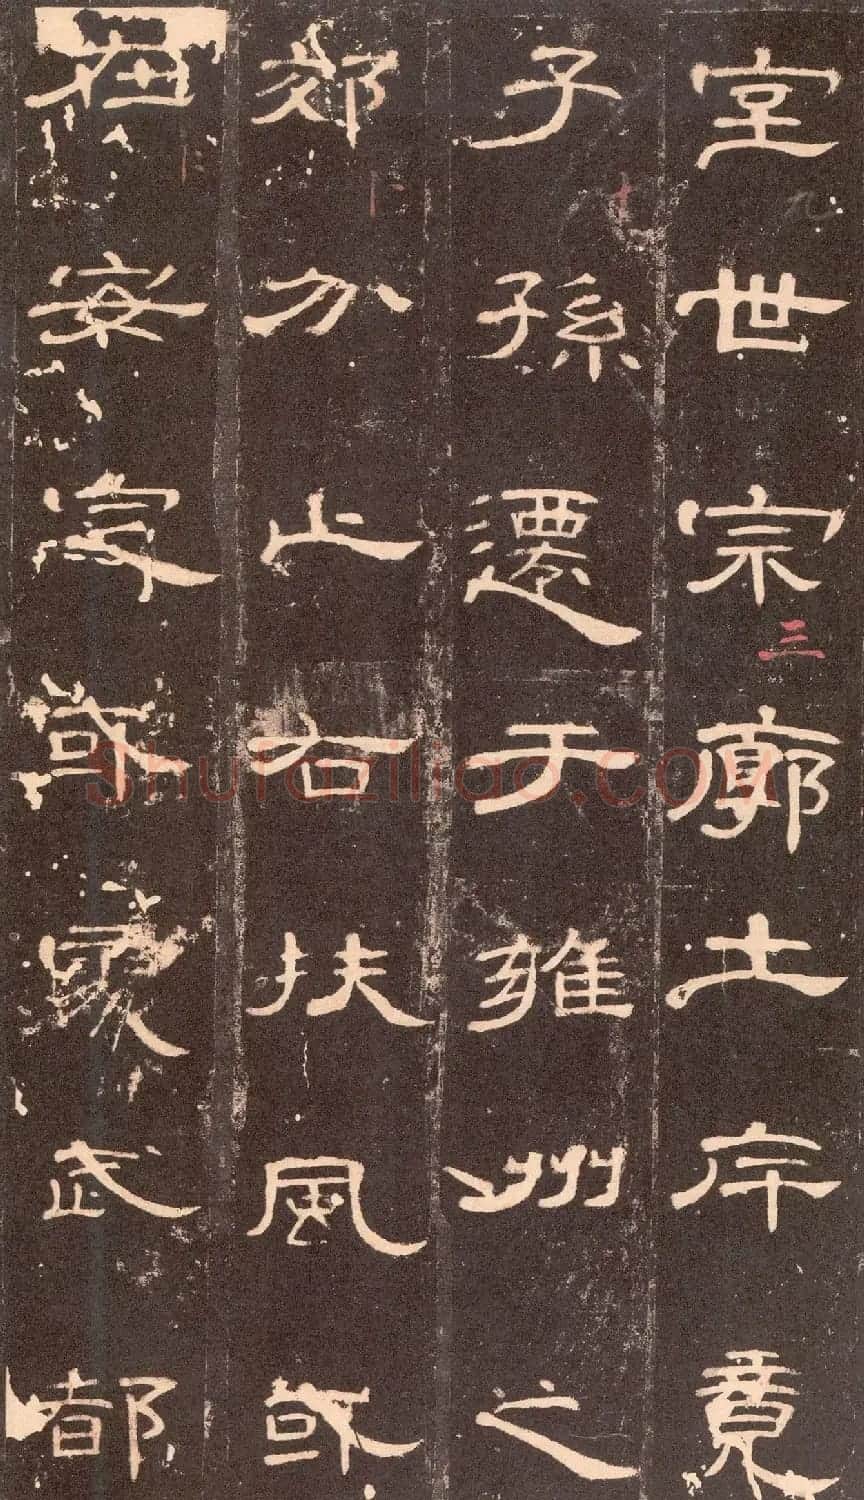 室世宗廓土斥竟
子孫遷于雍州之
郊分止右扶風或
在安定或處武都
三
Shufaziliao.com